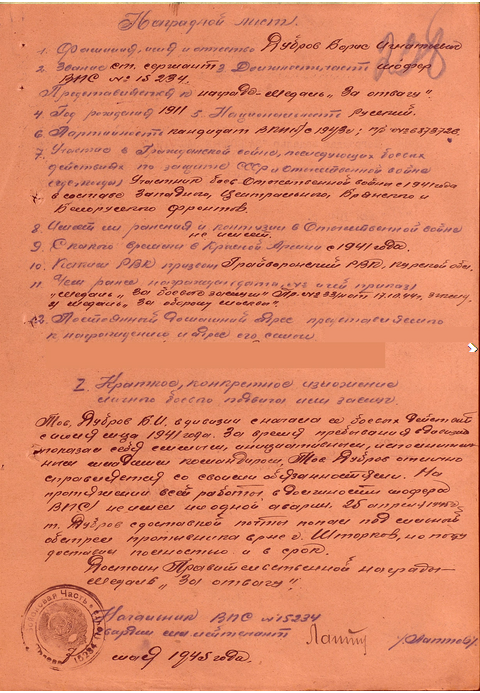 Наградной лист.
1. Фамилия, имя и отчество Дубров Борис Игнатович
2. Звание ст. сержант 3. Должность, часть шофер
ВПС № 15234.
Представляется к награде - медаль "За отвагу".
4. Год рождения 1911 5. Национальность Русский.
6. Партийность кандидат ВКП(б) с 1943г;
7. Участие в Гражданской войне, последующих боевых
действиях по защите СССР и Отечественной войне
(где, когда) Участник боев Отечественной войны с 1941 года
в составе Западного, Центрального, Брянского и
Белорусского фронтов.
8. Имеет ли ранения и контузии в Отечественной войне
не имеет.
9. С какого времени в Красной Армии с 1941 года.
10. Каким РВК призван Грайворонский РВК, Курской обл.
11. Чем ранее награжден (дата, № и чей приказ)
"Медаль" За боевые заслуги" Пр. 17.10.44г.
2) медаль "За оборону
12. Постоянный домашний адрес представляемого
к награждению и адрес его семьи
I. Краткое, конкретное изложение
личного боевого подвига или заслуг.
Тов. Дубров Б.И. в дивизии с начала ее боевых действий
с июля м-ца 1941 года. За время пребывания в дивизии
показал себя смелым, инициативным, исполнитель-
ным младшим командиром. Тов. Дубров отлично
справляется со своими обязанностями. На
протяжении всей работы в должности шофера
ВПС/ не имел ни одной аварии. 25 апреля 1945 г.
т. Дубров с доставкой почты попал под сильный
обстрел противника в р-не г. Шторков, но почту
доставил полностью и в срок.
Достоин Правительственной награды -
медаль "За отвагу".
Начальник ВПС № 15234
гвардии ст. лейтенант
7 мая 1945 года.
238